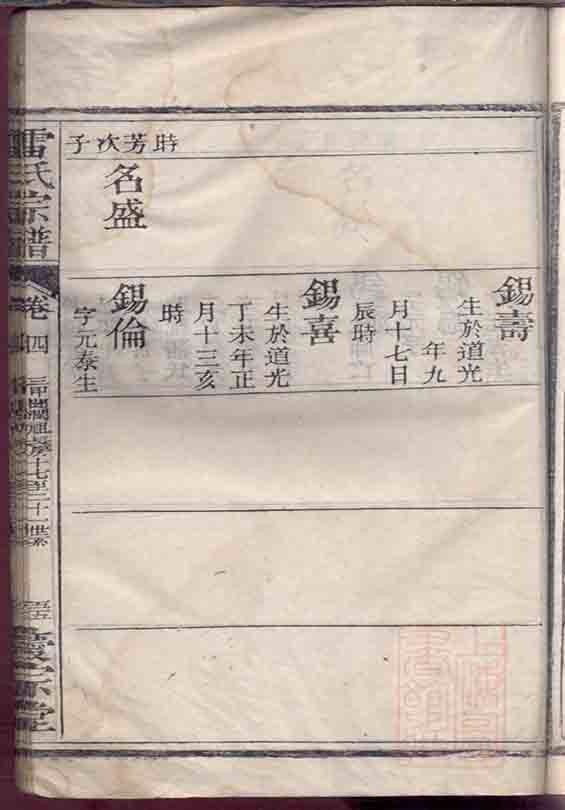 錫壽
生於道光
年九
月十七日
辰時
錫喜
生於道光
丁未年正
月十三亥
時
時芳次子
名盛
錫倫
字元泰生
雷氏宗譜
卷四
十七至二十一世
宗堂